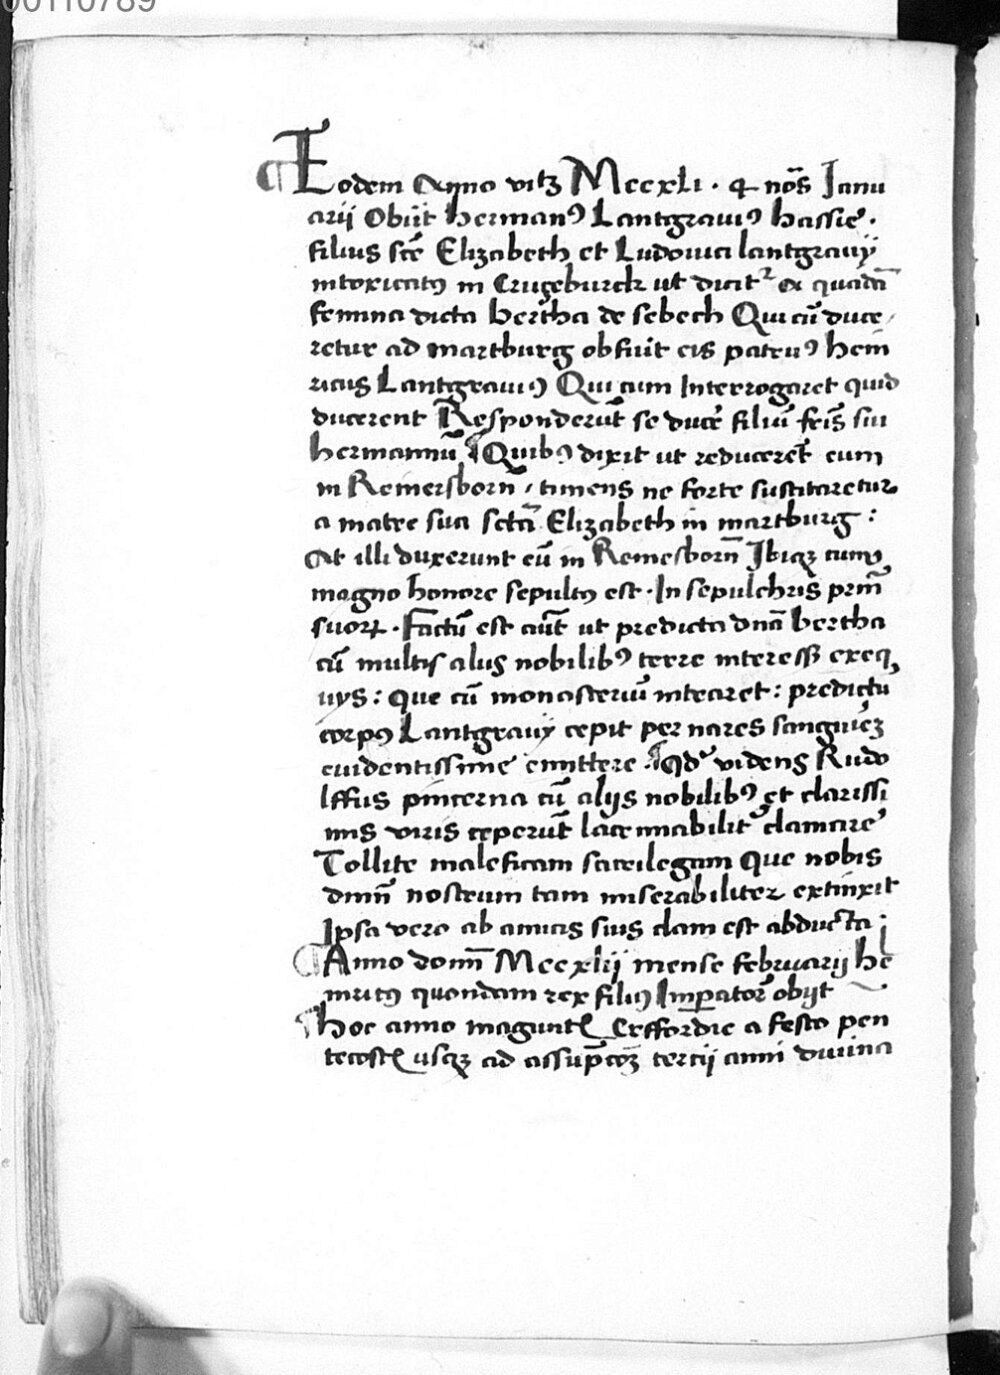 00110789
¶ Eodem Anno vitꝫ Mccxli · 4 nos̄ Janu
arij Obijt hermanꝰ Lantgrauiꝰ hassie ·
filius scē Elizabeth et Ludouici lantgrauij
intoxicatꝰ in Crugeburck ut dicit᷑ ex quadā
femina dicta bertha de sebech Qui cū duce
retur ad martburg obfuit eis patruꝰ hein
ricus Lantgrauiꝰ Qui cum Interrogaret quid
ducerent Responderūt se ducē filiū fr̄is sui
hermannū ¶ Quibꝰ dixit ut reducerēt eum
in Reinersborn / timens ne forte suscitaretur
a matre sua sctā Elizabeth in martburg :
At illi duxerunt eū in Remesborn̄ Ibiqꝫ cum
magno honore sepultꝰ est · In sepulchris prm̄
suoꝝ · Factū est aūt ut predicta dnā bertha
cū multis alijs nobilibꝰ terre interess̄ exeq
uijs : Que cū monasteriū intraret : predictū
corpꝰ Lantgrauij cepit per nares sanguinēꝫ
euidentissime emittere · ¶ Qd᷑ videns Rudo
lffus pincerna cū alijs nobilibꝰ et clarissi
mis viris ceperūt lacrimabilit᷑ clamare
Tollite maleficam sacrilegam Que nobis
dnm̄ nostrum tam miserabiliter extinxit
Ipsa vero ab amicis suis clam est abducta ·
¶ Anno domī Mccxlij mense februarij he
inricꝰ quondam rex filiꝰ Imperatoꝝ obijt
¶ hoc anno magunt̄ Erffordie a festo pen
tecost̄ usqꝫ ad assupcōꝫ tercij anni diuina